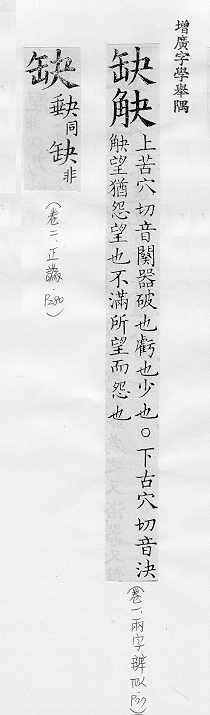 增廣字學舉隅
缺觖
上苦穴切音闋器破也虧也少也○下古穴切音決
觖望猶怨望也不滿所望而怨也
(卷一.兩字辨似.
缺
𡙇同缺非
(卷二.正譌.P280)